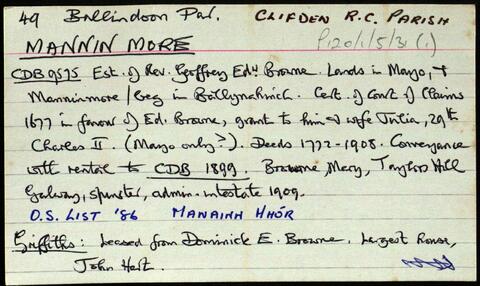 49 Ballindoon Par. CLIFDEN R.C. PARISH
P120/1/5/31 (1)
MANNIN MORE
CDB 9575 Est. of Rev. Geoffrey Edw Browne. Lands in Mayo, +
Manninmore/beg in Ballynahinch. Cert. of Court of Claims
1677 in favour of Ed. Browne, grant to him & wife Julia, 29th
Charles II. (Mayo only?). Deeds 1772-1908. Conveyance
with rental to CDB 1899. Browne, Mary, Taylors Hill
Galway, spinster, admin. intestate 1909.
O.S. LIST '86 MANAINN MHÓR
Griffiths: Leased from Dominick E. Browne. Largest house,
John Hart.